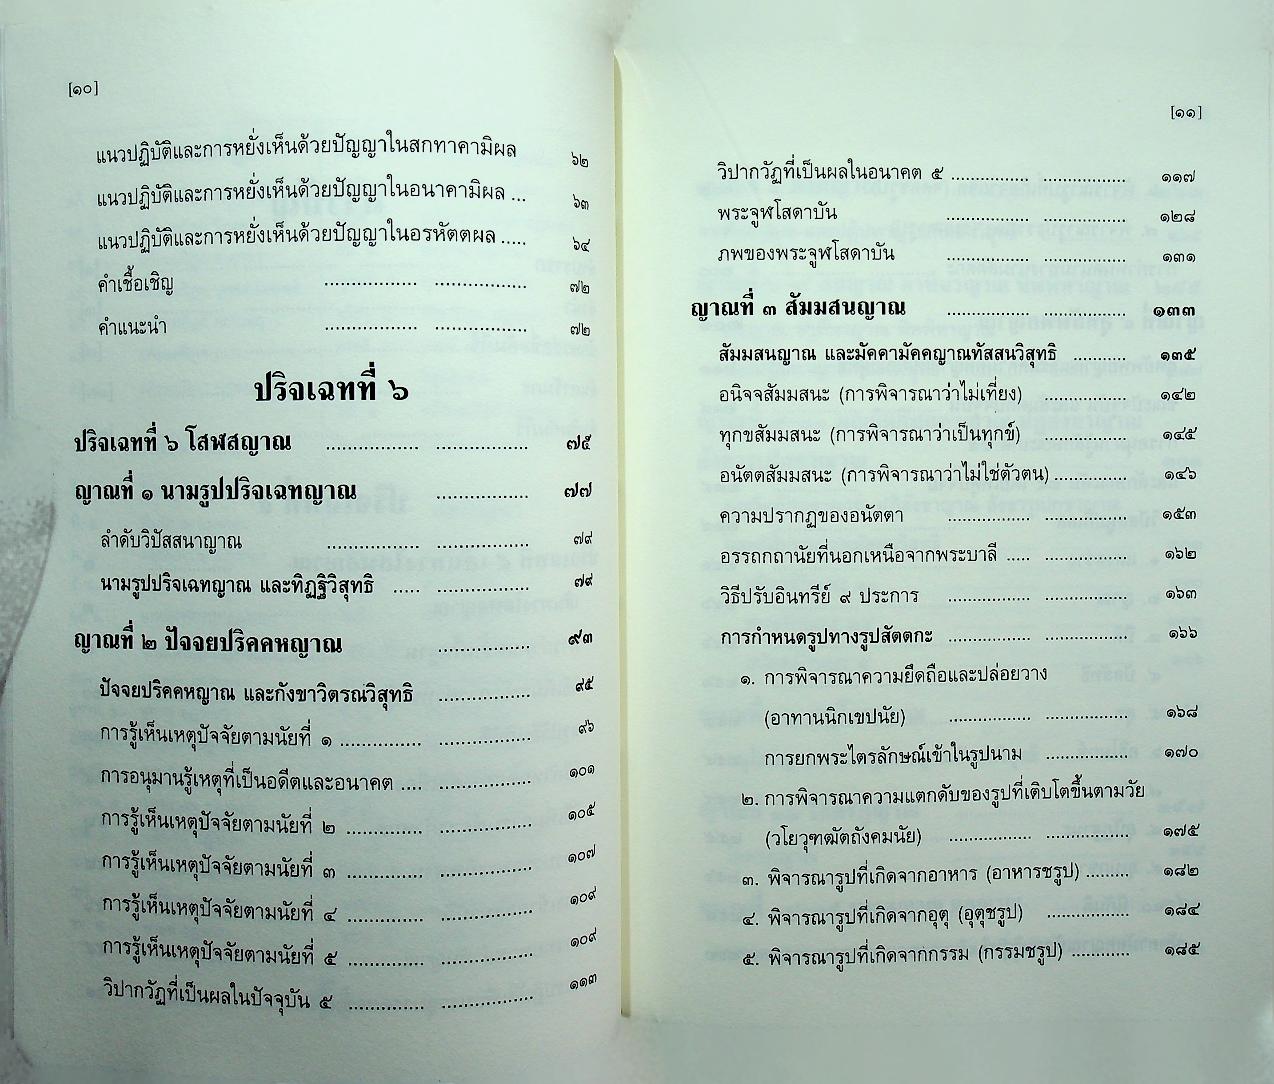 [๑๐]
แนวปฏิบัติและการหยั่งเห็นด้วยปัญญาในสกทาคามิผล ๖๒
แนวปฏิบัติและการหยั่งเห็นด้วยปัญญาในอนาคามิผล ... ๖๓
แนวปฏิบัติและการหยั่งเห็นด้วยปัญญาในอรหัตตผล ..... ๖๔
คำเชื้อเชิญ ................. ................. ๗๒
คำแนะนำ ................. ................. ๗๒
ปริจเฉทที่ ๖
ปริจเฉทที่ ๖ โสฬสญาณ ................. ................. ๗๕
ญาณที่ ๑ นามรูปปริจเฉทญาณ ................. ๗๗
ลำดับวิปัสสนาญาณ ................. ................. ๗๙
นามรูปปริจเฉทญาณ และทิฏฐิวิสุทธิ ..... ................. ๗๙
ญาณที่ ๒ ปัจจยปริคคหญาณ ................. ๙๓
ปัจจยปริคคหญาณ และกังขาวิตรณวิสุทธิ ................. ๙๕
การรู้เห็นเหตุปัจจัยตามนัยที่ ๑ ............... ................. ๙๖
การอนุมานรู้เหตุที่เป็นอดีตและอนาคต .... ................. ๑๐๑
การรู้เห็นเหตุปัจจัยตามนัยที่ ๒ .............. ................. ๑๐๕
การรู้เห็นเหตุปัจจัยตามนัยที่ ๓ .............. ................. ๑๐๗
การรู้เห็นเหตุปัจจัยตามนัยที่ ๔ .............. ................. ๑๐๙
การรู้เห็นเหตุปัจจัยตามนัยที่ ๕ .............. ................. ๑๐๙
วิปากวัฏที่เป็นผลในปัจจุบัน ๕ .............. ................. ๑๑๓
[๑๑]
วิปากวัฏที่เป็นผลในอนาคต ๕ .............. ............... ๑๑๗
พระจูฬโสดาบัน ............... ............... ๑๒๘
ภพของพระจูฬโสดาบัน ............... ............... ๑๓๑
ญาณที่ ๓ สัมมสนญาณ ............... ............... ๑๓๓
สัมมสนญาณ และมัคคามัคคญาณทัสสนวิสุทธิ .......... ๑๓๕
อนิจจสัมมสนะ (การพิจารณาว่าไม่เที่ยง) ............... ๑๔๒
ทุกขสัมมสนะ (การพิจารณาว่าเป็นทุกข์) ............... ๑๔๕
อนัตตสัมมสนะ (การพิจารณาว่าไม่ใช่ตัวตน) ............. ๑๔๖
ความปรากฏของอนัตตา ............... ............... ๑๕๓
อรรถกถานัยที่นอกเหนือจากพระบาลี ..... ............... ๑๖๒
วิธีปรับอินทรีย์ ๙ ประการ ............... ............... ๑๖๓
การกำหนดรูปทางรูปสัตตกะ ............... ............... ๑๖๖
๑. การพิจารณาความยึดถือและปล่อยวาง
(อาทานนิกเขปนัย) ............... ............... ๑๖๘
การยกพระไตรลักษณ์เข้าในรูปนาม ............... ๑๗๐
๒. การพิจารณาความแตกดับของรูปที่เติบโตขึ้นตามวัย
(วโยวุฑฒัตถังคมนัย) ............... ............... ๑๗๕
๓. พิจารณารูปที่เกิดจากอาหาร (อาหารชรูป) ........ ๑๘๒
๔. พิจารณารูปที่เกิดจากอุตุ (อุตุชรูป) ............... ๑๘๔
๕. พิจารณารูปที่เกิดจากกรรม (กรรมชรูป) ........... ๑๘๕